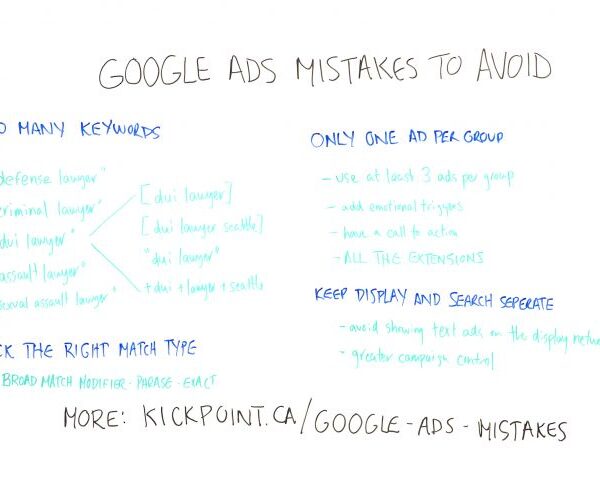 GOOGLE ADS MISTAKES TO AVOID
O MANY KEYWORDS
defense lawyer"
criminal lawyer"
dui lawyer"
assault lawyer"
sexual assault lawyer"
[dui lawyer]
[dui lawyer seattle]
"dui lawyer"
+dui +lawyer +seattle
CK THE RIGHT MATCH TYPE
BROAD MATCH MODIFIER - PHRASE - EXACT
ONLY ONE AD PER GROUP
- use at least 3 ads per group
- add emotional triggers
- have a call to action
- ALL THE EXTENSIONS
KEEP DISPLAY AND SEARCH SEPERATE
- avoid showing text ads on the display netw
- greater campaign control
MORE: KICKPOINT.CA/GOOGLE-ADS-MISTAKES